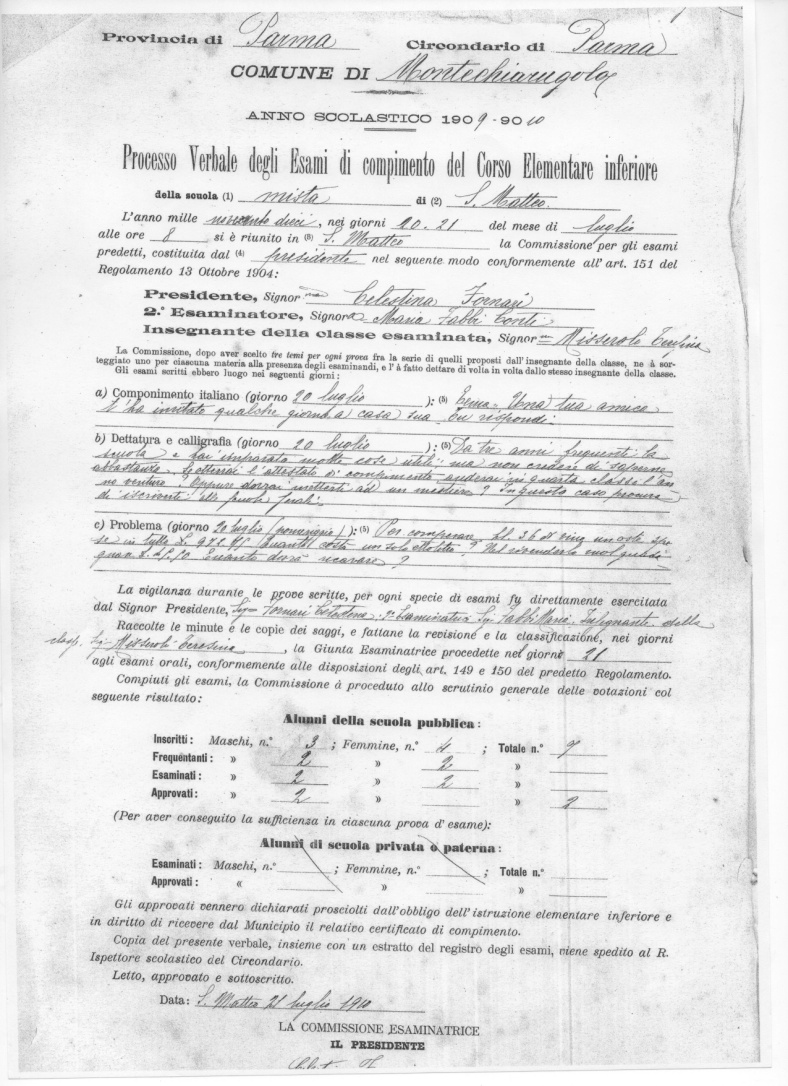 Provincia di Parma Circondario di Parma
COMUNE DI Montechiarugolo
ANNO SCOLASTICO 1909-9010
Processo Verbale degli Esami di compimento del Corso Elementare inferiore
della scuola (1) mista di (2) S. Matteo
L'anno mille novecento dieci, nei giorni 20.21 del mese di luglio
alle ore 8 si è riunito in (3) S. Matteo la Commissione per gli esami
predetti, costituita dal (4) presidente nel seguente modo conformemente all'art. 151 del
Regolamento 13 Ottobre 1904:
Presidente, Signor na Celestina Fornari
2.° Esaminatore, Signora Maria Fabbi Conti
Insegnante della classe esaminata, Signor na Misseroli
La Commissione, dopo aver scelto tre temi per ogni prova fra la serie di quelli proposti dall'insegnante della classe, ne à sor-
teggiato uno per ciascuna materia alla presenza degli esaminandi, e l'à fatto dettare di volta in volta dallo stesso insegnante della classe.
Gli esami scritti ebbero luogo nei seguenti giorni:
a) Componimento italiano (giorno 20 luglio ); (5) Tema. Una tua amica
t'ha invitato qualche giorno a casa sua. Tu rispondi.
b) Dettatura e calligrafia (giorno 20 luglio ); (5) Da tre anni frequenti la
scuola e hai imparato molte cose utili, ma non credere di saperne
abbastanza. Se otterrai l'attestato di compimento anderai in quarta classe l'an
no venturo? Oppure dovrai metterti ad un mestiere? In questo caso procura
di iscriverti alle scuole serali.
c) Problema (giorno 20 luglio ); (5) Per comperare hl. 36 di vino un oste spe
se in tutto L. Quanto costa un solo ettolitro? Nel rivenderlo vuol guada
gnare L. Quanto dovrà ricavare?
La vigilanza durante le prove scritte, per ogni specie di esami fu direttamente esercitata
dal Signor Presidente, Sig.na Fornari Celestina, 2° Esaminatore Sig. Fabbi Maria, Insegnante della
Raccolte le minute e le copie dei saggi, e fattane la revisione e la classificazione, nei giorni
class. Sig. Misseroli , la Giunta Esaminatrice procedette nel giorno 21
agli esami orali, conformemente alle disposizioni degli art. 149 e 150 del predetto Regolamento.
Compiuti gli esami, la Commissione à proceduto allo scrutinio generale delle votazioni col
seguente risultato:
Alunni della scuola pubblica:
Inscritti: Maschi, n.° 3 ; Femmine, n.° 4 ; Totale n.° 7
Frequentanti: » 2 » 2 »
Esaminati: » 2 » 2 »
Approvati: » 2 » » 2
(Per aver conseguito la sufficienza in ciascuna prova d'esame):
Alunni di scuola privata o paterna:
Esaminati: Maschi, n.° ; Femmine, n.° ; Totale n.°
Approvati: « » »
Gli approvati vennero dichiarati prosciolti dall'obbligo dell'istruzione elementare inferiore e
in diritto di ricevere dal Municipio il relativo certificato di compimento.
Copia del presente verbale, insieme con un estratto del registro degli esami, viene spedito al R.
Ispettore scolastico del Circondario.
Letto, approvato e sottoscritto.
Data: S. Matteo 21 luglio 1910
LA COMMISSIONE ESAMINATRICE
IL PRESIDENTE